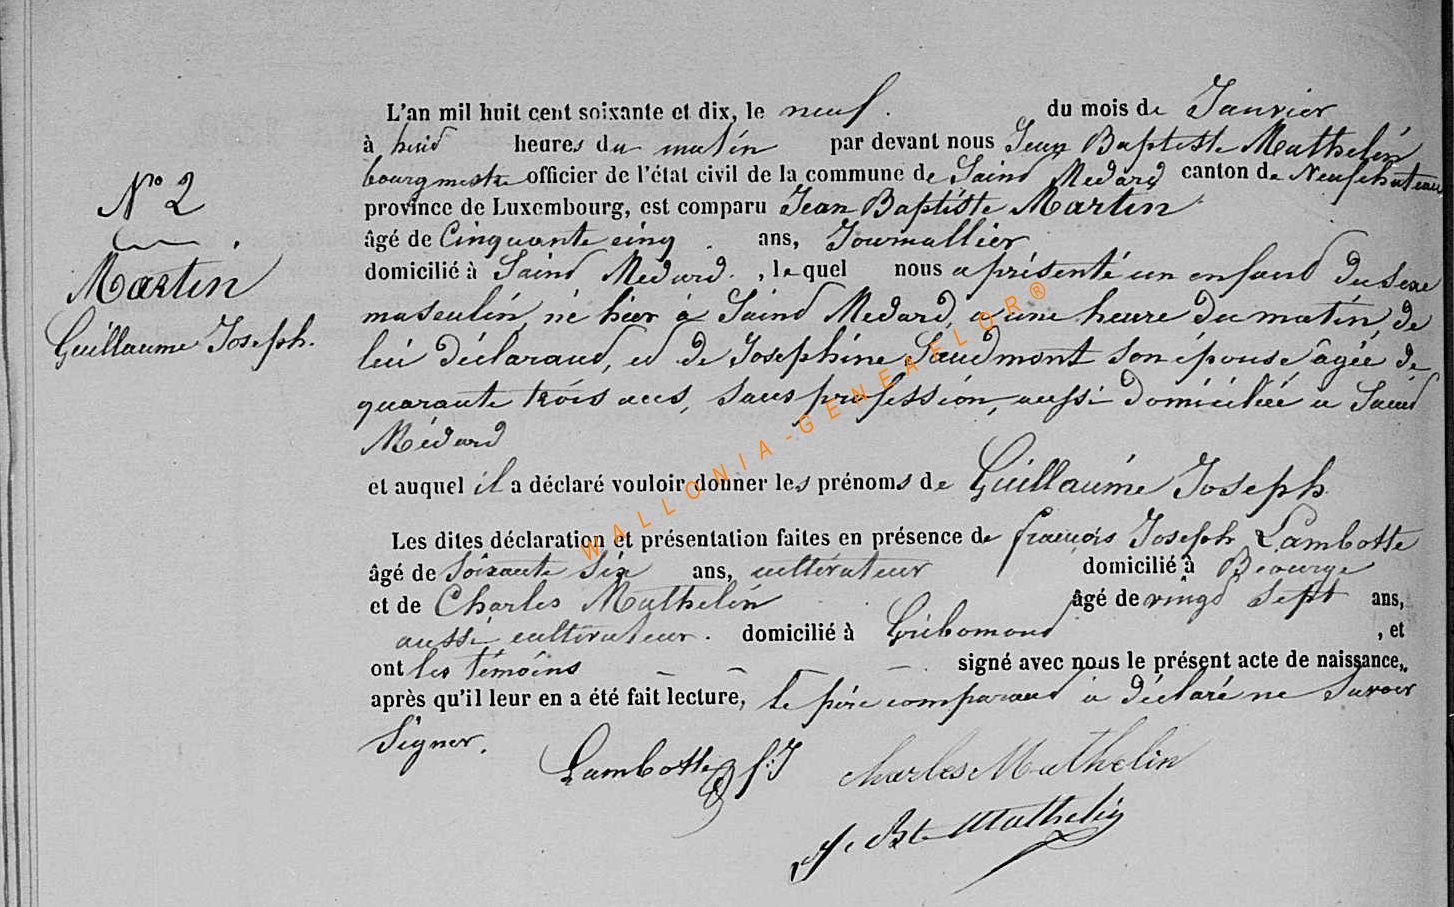 L'an mil huit cent soixante et dix, le neuf. du mois de Janvier
à huid heures du matin par devant nous Jean Baptiste Mathelin
bourgmestre officier de l'état civil de la commune de Saind Medard canton de Neufchateau
N° 2
province de Luxembourg, est comparu Jean Baptiste Martin
âgé de Cinquante cinq ans, Journallier
Martin
domicilié à Saind Medard, lequel nous a présenté un enfand du sexe
masculin, né hier à Saind Medard, a une heure du matin, de
Guillaume Joseph.
lui déclarand, ed de Josephine Saudmont son épouse âgée de
quarante trois ans, sans profession, aussi domiciliée a Saind
Médard
et auquel il a déclaré vouloir donner les prénoms de Guillaume Joseph
Les dites déclaration et présentation faites en présence de françois Joseph Lambotte
âgé de soixante six ans, cultivateur domicilié à
et de Charles Mathelin âgé de vingd sept ans,
aussi cultivateur. domicilié à Gribomond, et
ont les témoins signé avec nous le présent acte de naissance,
après qu'il leur en a été fait lecture, le père comparand a déclaré ne savoir
signer.
Lambotte f.J Charles Mathelin
J. Bte Mathelin
WALLONIA-GENEAFLOR®